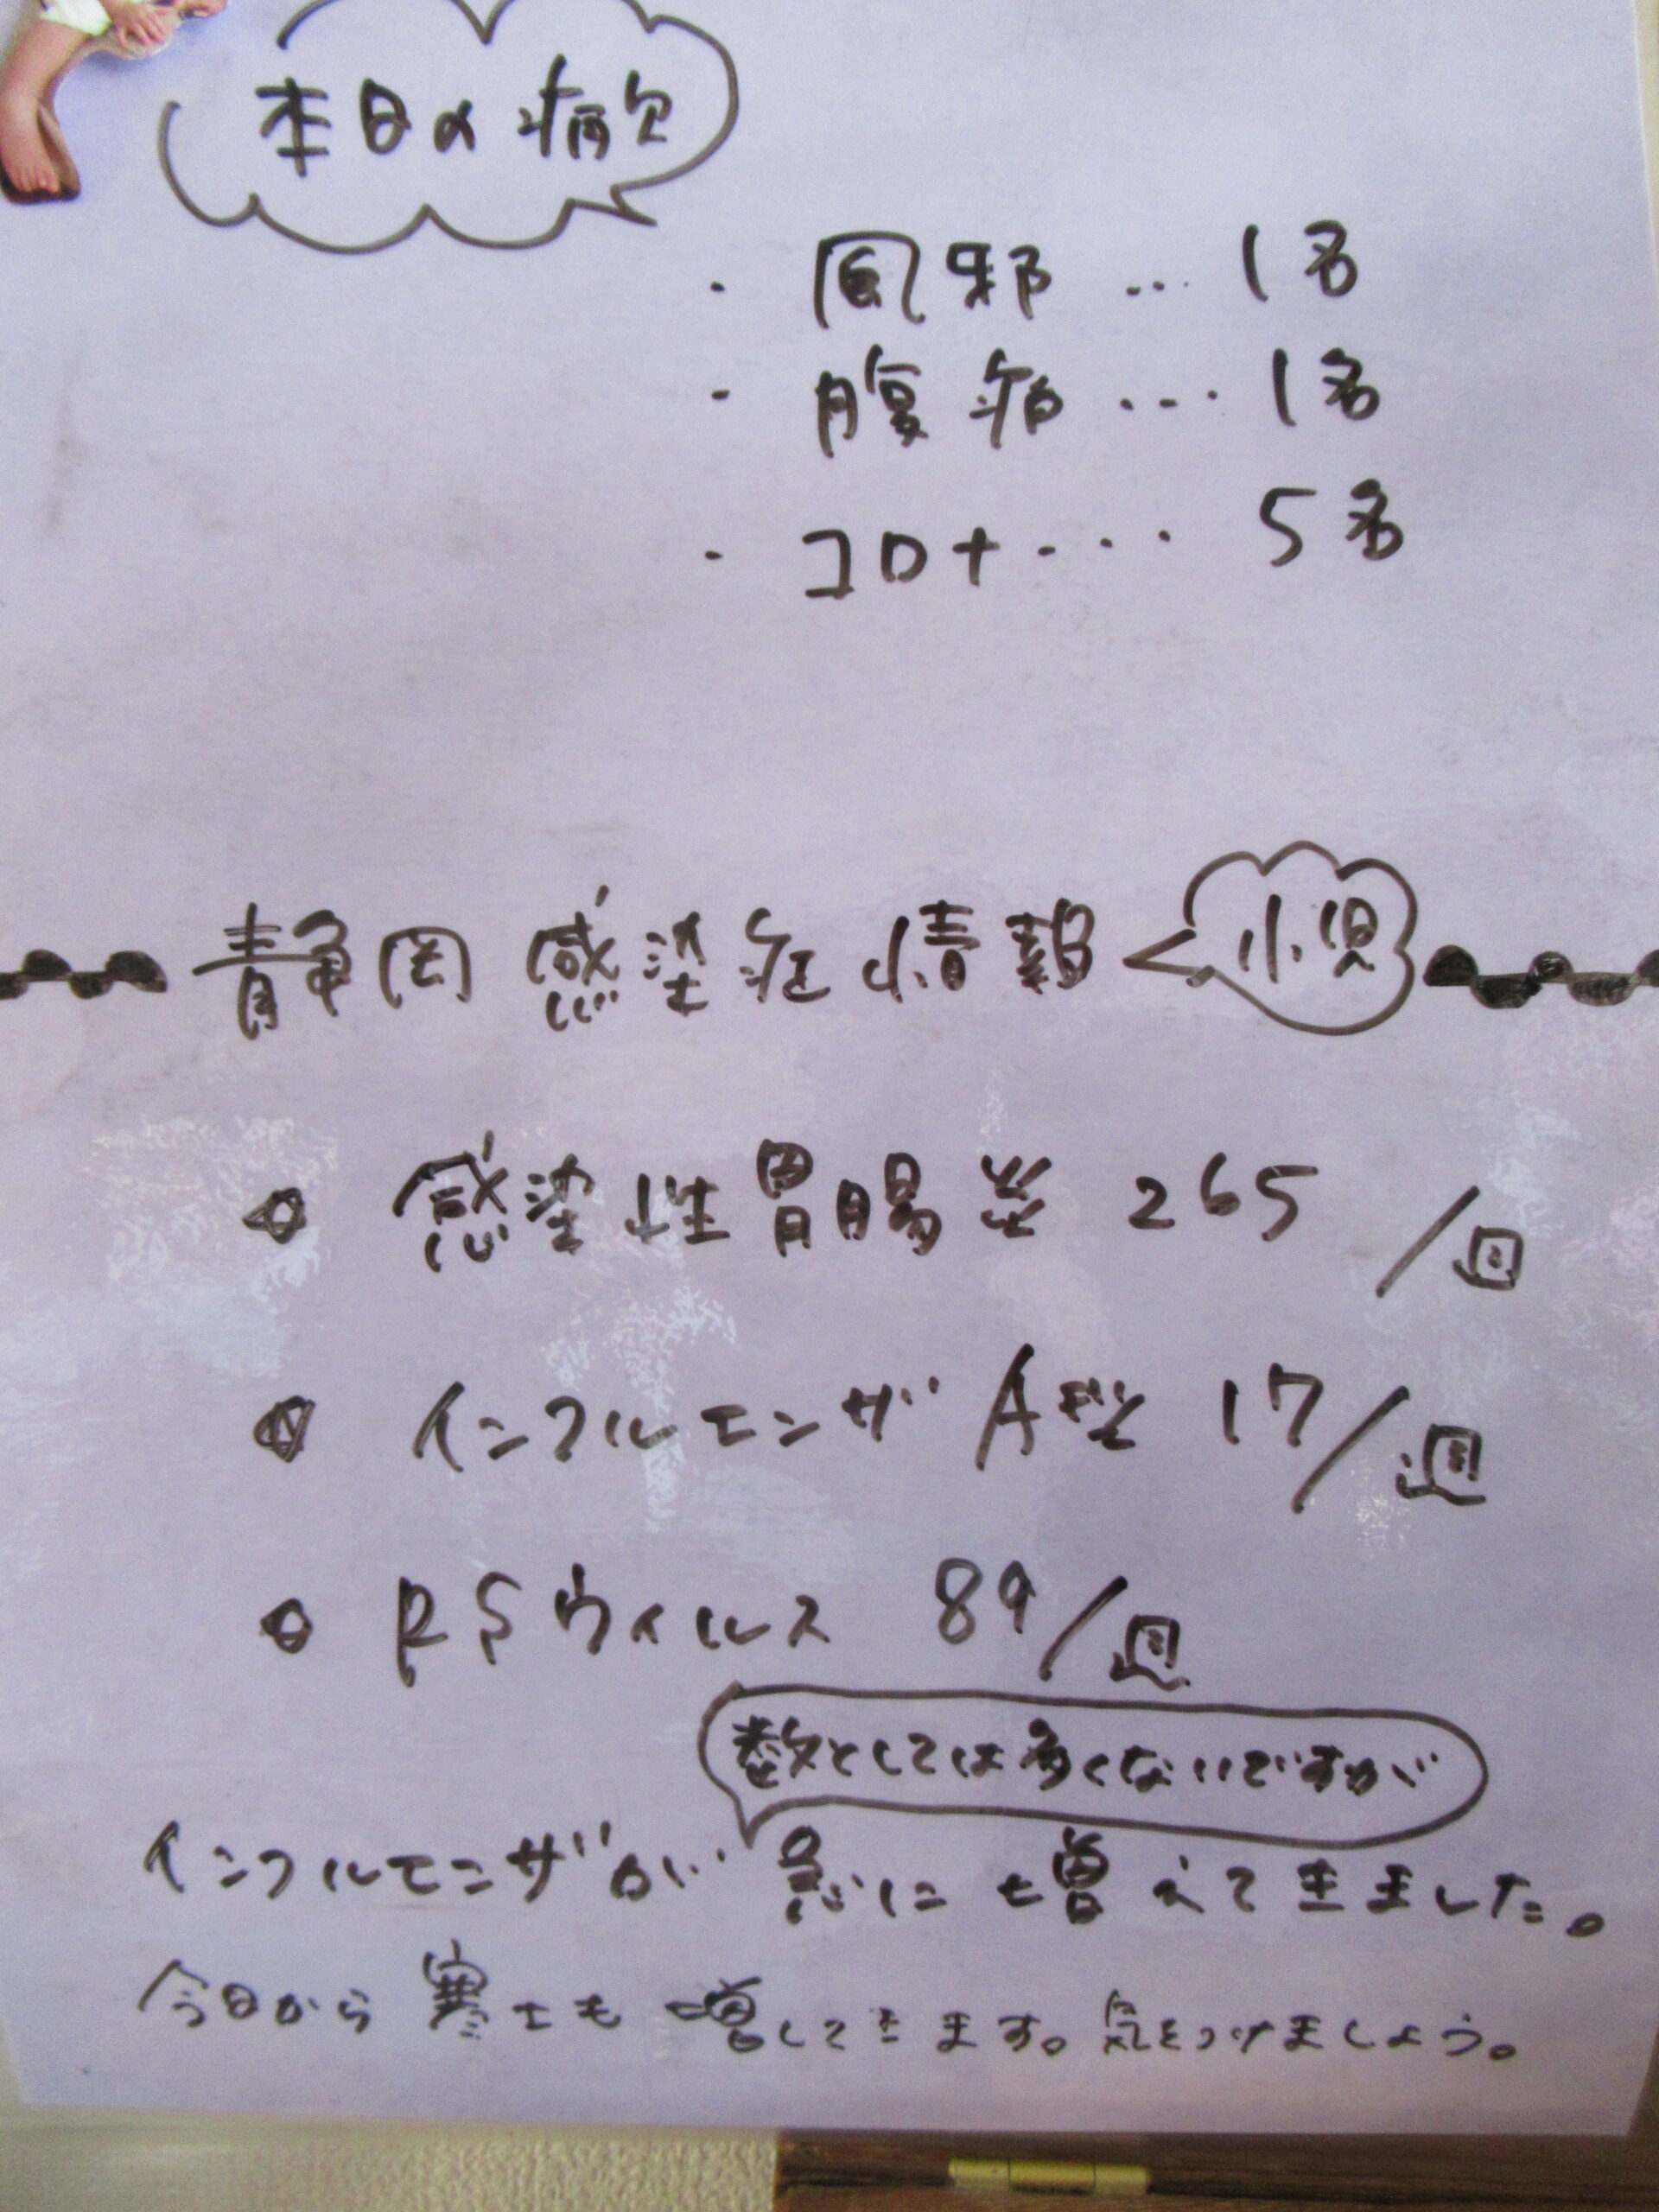 本日の病欠
・風邪…1名
・腹痛…1名
・コロナ…5名
静岡感染症情報
小児
感染性胃腸炎 265/週
インフルエンザA型 17/週
RSウィルス 89/週
数としては多くないですが
インフルエンザが急に増えてきました。
今日から寒さも増してきます。気をつけましょう。